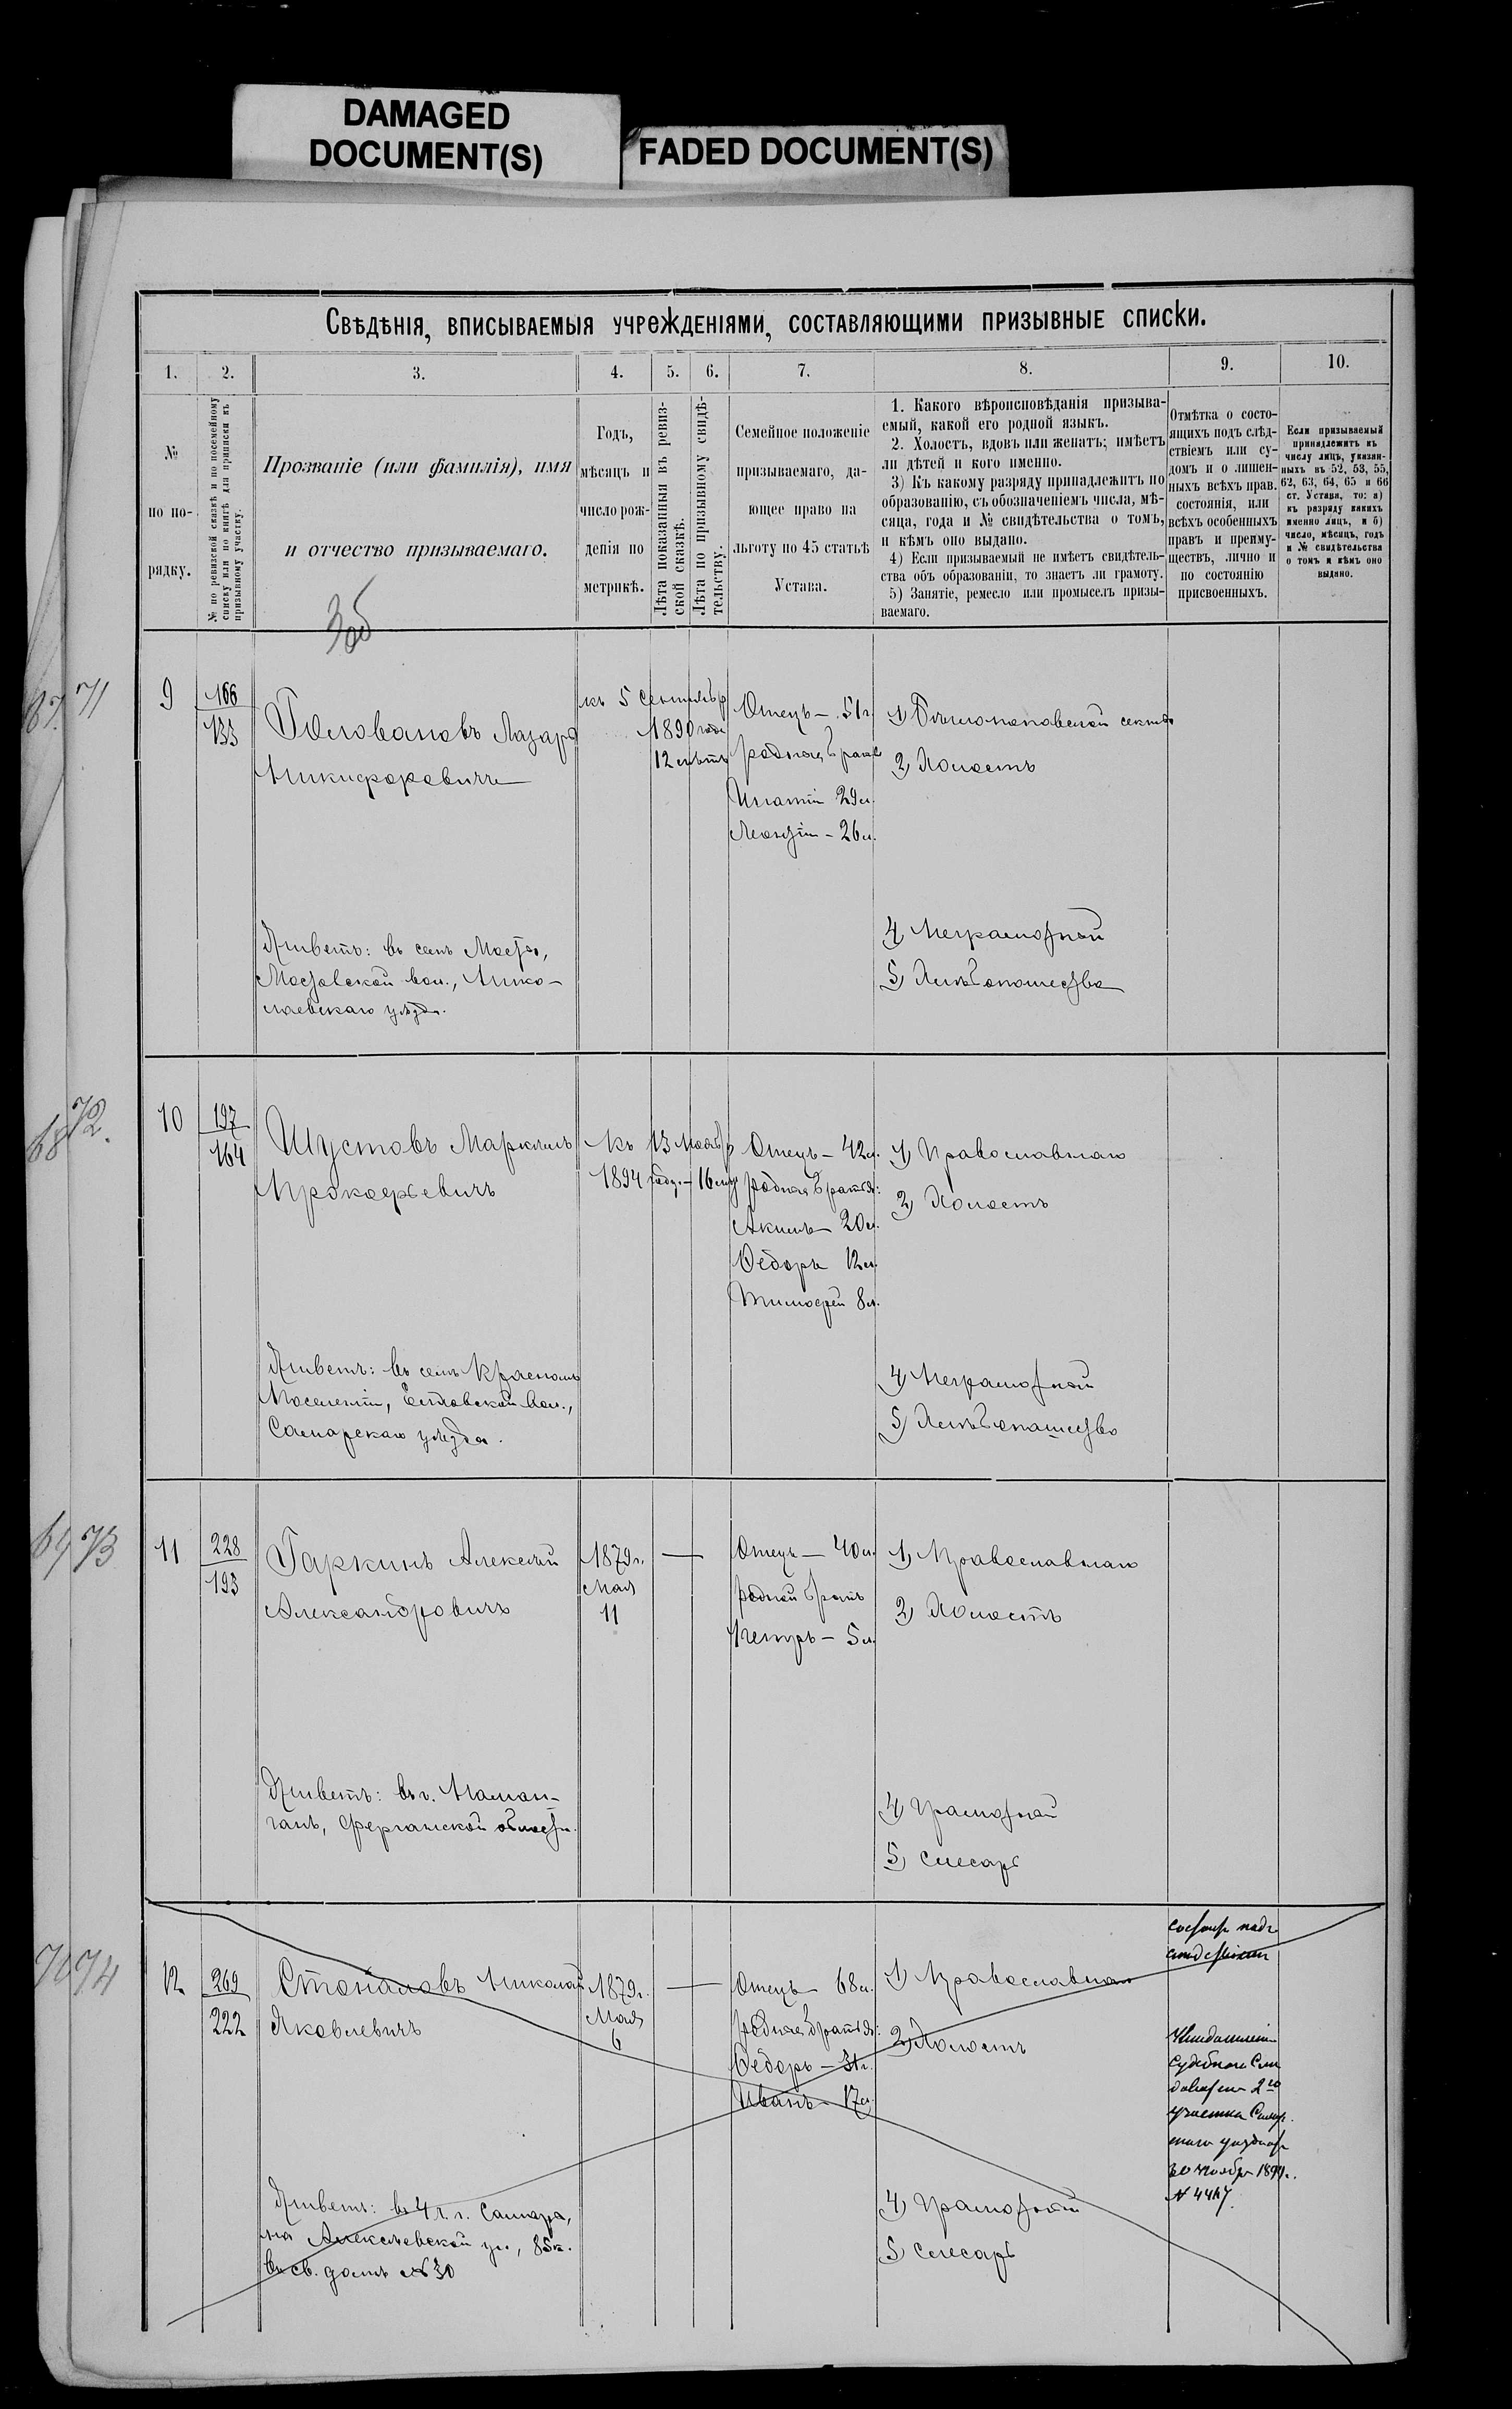 DAMAGED
DOCUMENT(S)
FADED DOCUMENT(S)
Свѣдѣнія, вписываемыя учрежденіями, составляющими призывные списки.
1.
2.
3.
4.
5.
6.
7.
8.
9.
10.
№
по по-
рядку.
№ по ревизской сказкѣ и по посемейному
списку или по книгѣ для приписки къ
призывному участку.
Прозваніе (или фамилія), имя
и отчество призываемаго.
Годъ,
мѣсяцъ и
число рож-
денія по
метрикѣ.
Лѣта показанныя въ ревиз-
ской сказкѣ.
Лѣта по призывному свидѣ-
тельству.
Семейное положеніе
призываемаго, да-
ющее право на
льготу по 45 статьѣ
Устава.
1. Какого вѣроисповѣданія призыва-
емый, какой его родной языкъ.
2. Холостъ, вдовъ или женатъ; имѣетъ
ли дѣтей и кого именно.
3) Къ какому разряду принадлежитъ по
образованію, съ обозначеніемъ числа, мѣ-
сяца, года и № свидѣтельства о томъ,
и кѣмъ оно выдано.
4) Если призываемый не имѣетъ свидѣтель-
ства объ образованіи, то знаетъ ли грамоту.
5) Занятіе, ремесло или промыселъ призы-
ваемаго.
Отмѣтка о состо-
ящихъ подъ слѣд-
ствіемъ или су-
домъ и о лишен-
ныхъ всѣхъ прав.
состоянія, или
всѣхъ особенныхъ
правъ и преиму-
ществъ, лично и
по состоянію
присвоенныхъ.
Если призываемый
принадлежитъ къ
числу лицъ, указан-
ныхъ въ 52, 53, 55,
62, 63, 64, 65 и 66
ст. Устава, то: а)
къ разряду какихъ
именно лицъ, и б)
число, мѣсяцъ, годъ
и № свидѣтельства
о томъ и кѣмъ оно
выдано.
71
9
166
133
Головановъ Лазарь
Никифоровичъ
къ 5 Сентября
1890 года
12 лѣтъ
Отецъ – 51 г.
родные братья
Игнатій 29 л.
Леонтій – 26 л.
1) Безпоповской секты
2) Холостъ
Живетъ: въ селѣ Мостахъ,
Мостовской вол., Нико-
лаевскаго уѣзда.
4) Неграмотной
5) Хлѣбопашество
68
72.
10
197
164
Шустовъ Маркелъ
Прокофьевичъ
къ 13 Ноября
1894 году – 16 лѣтъ
Отецъ – 42 л.
родные братья:
Акимъ 20 л.
Ѳедоръ 12 л.
Тимофей 8 л.
1) Православнаго
2) Холостъ
Живетъ: въ селѣ Красномъ
Поселеніи, Вол.,
Самарскаго уѣзда.
4) Неграмотной
5) Хлѣбопашество
69
73
11
228
193
Гаркинъ Алексѣй
Александровичъ
1879 г.
Мая
11
Отецъ – 40 л.
родной братъ
Петръ – 5 л.
1) Православнаго
2) Холостъ
Живетъ: въ г. Наман-
ганъ, Ферганской области.
4) Грамотной
5) Слесарь
70
74
12
269
222
Николай
Яковлевичъ
1879 г.
Мая
6
Отецъ 68 л.
родные братья:
Ѳедоръ – 31 г.
Иванъ – 17 л.
1) Православнаго
2) Холостъ
подъ
слѣдствіемъ
Судебнаго Слѣ
дователя 2го
участка
30 Ноября
N 4447.
Живетъ: въ 4 ч. г. Самара,
на Алексѣевской ул., 85 к.
въ св. домѣ № 30
4) Грамотной
5) Слесарь